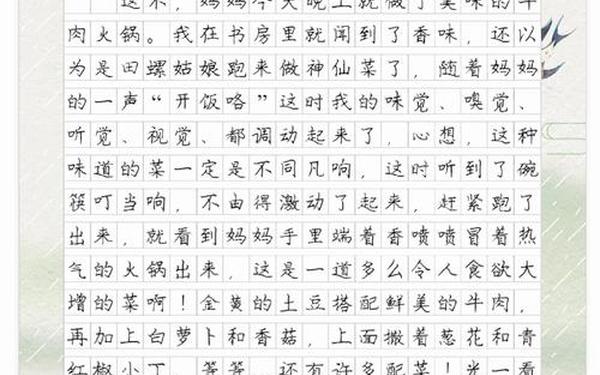 这不，妈妈今天晚上就做了美味的牛
肉火锅。我在书房里就闻到了香味，还以
为是田螺姑娘跑来做神仙菜了，随着妈妈
的一声“开饭咯”这时我的味觉、嗅觉、
听觉、视觉、都调动起来了，心想，这种
味道的菜一定是不同凡响，这时听到了碗
筷叮当响，不由得激动了起来，赶紧跑了
出来，就看到妈妈手里端着香喷喷冒着热
气的火锅出来，这是一道多么令人食欲大
增的菜啊！金黄的土豆搭配鲜美的牛肉，
再加上白萝卜和香菇，上面撒着葱花和青
红椒小丁，等等…还有许多配菜！光一看